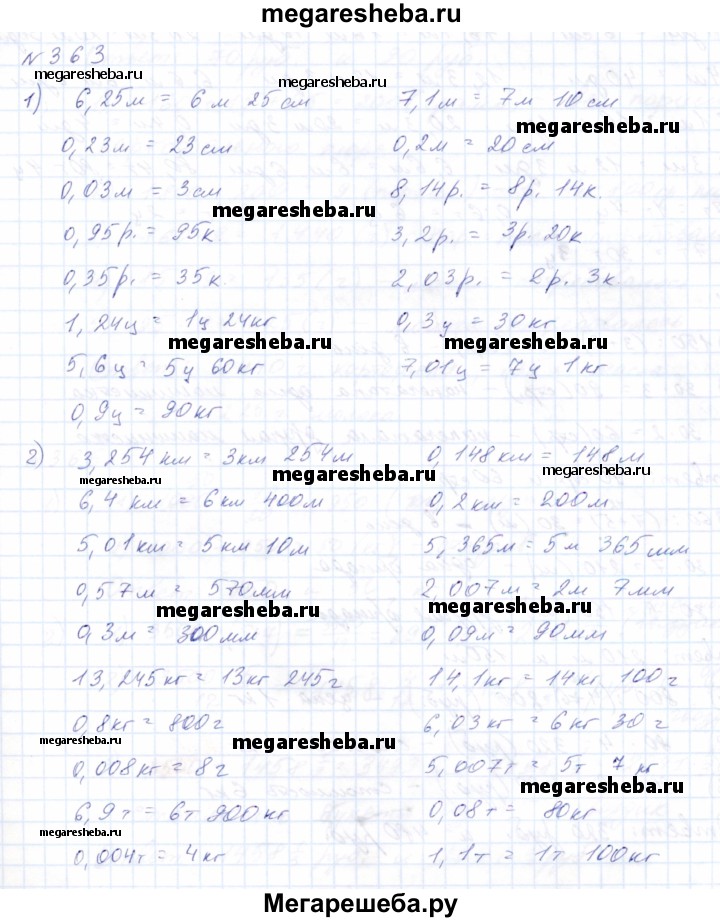 megaresheba.ru
N 363
megaresheba.ru
megaresheba.ru
1) 6,25м = 6м 25см 7,1м = 7м 10см
megaresheba.ru
0,23м = 23см 0,2м = 20см
0,03м = 3см 8,14р. = 8р. 14к.
megaresheba.ru
0,95р. = 95к 3,2р. = 3р. 20к
0,35р. = 35к. 2,03р. = 2р. 3к
1,24ц = 1ц 24кг 0,3ц = 30кг
megaresheba.ru megaresheba.ru
5,6ц = 5ц 60кг 7,01ц = 7ц 1кг
0,9ц = 90кг
2) 3,254км = 3км 254м 0,148км = 148м
megaresheba.ru megaresheba.ru megaresheba.ru
6,4 км = 6км 400м 0,2км = 200м
5,01км = 5км 10м 5,365м = 5м 365мм
0,57м = 570мм 2,007м = 2м 7мм
megaresheba.ru megaresheba.ru
0,3м = 300мм 0,09м = 90мм
13,245кг = 13кг 245г 14,1кг = 14кг 100г
0,8кг = 800г 6,03кг = 6кг 30г
megaresheba.ru megaresheba.ru
0,008кг = 8г 5,007т = 5т 7кг
megaresheba.ru
6,9т = 6т 900кг 0,08т = 80кг
megaresheba.ru
0,004т = 4кг 1,1т = 1т 100кг
Мегарешеба.ру